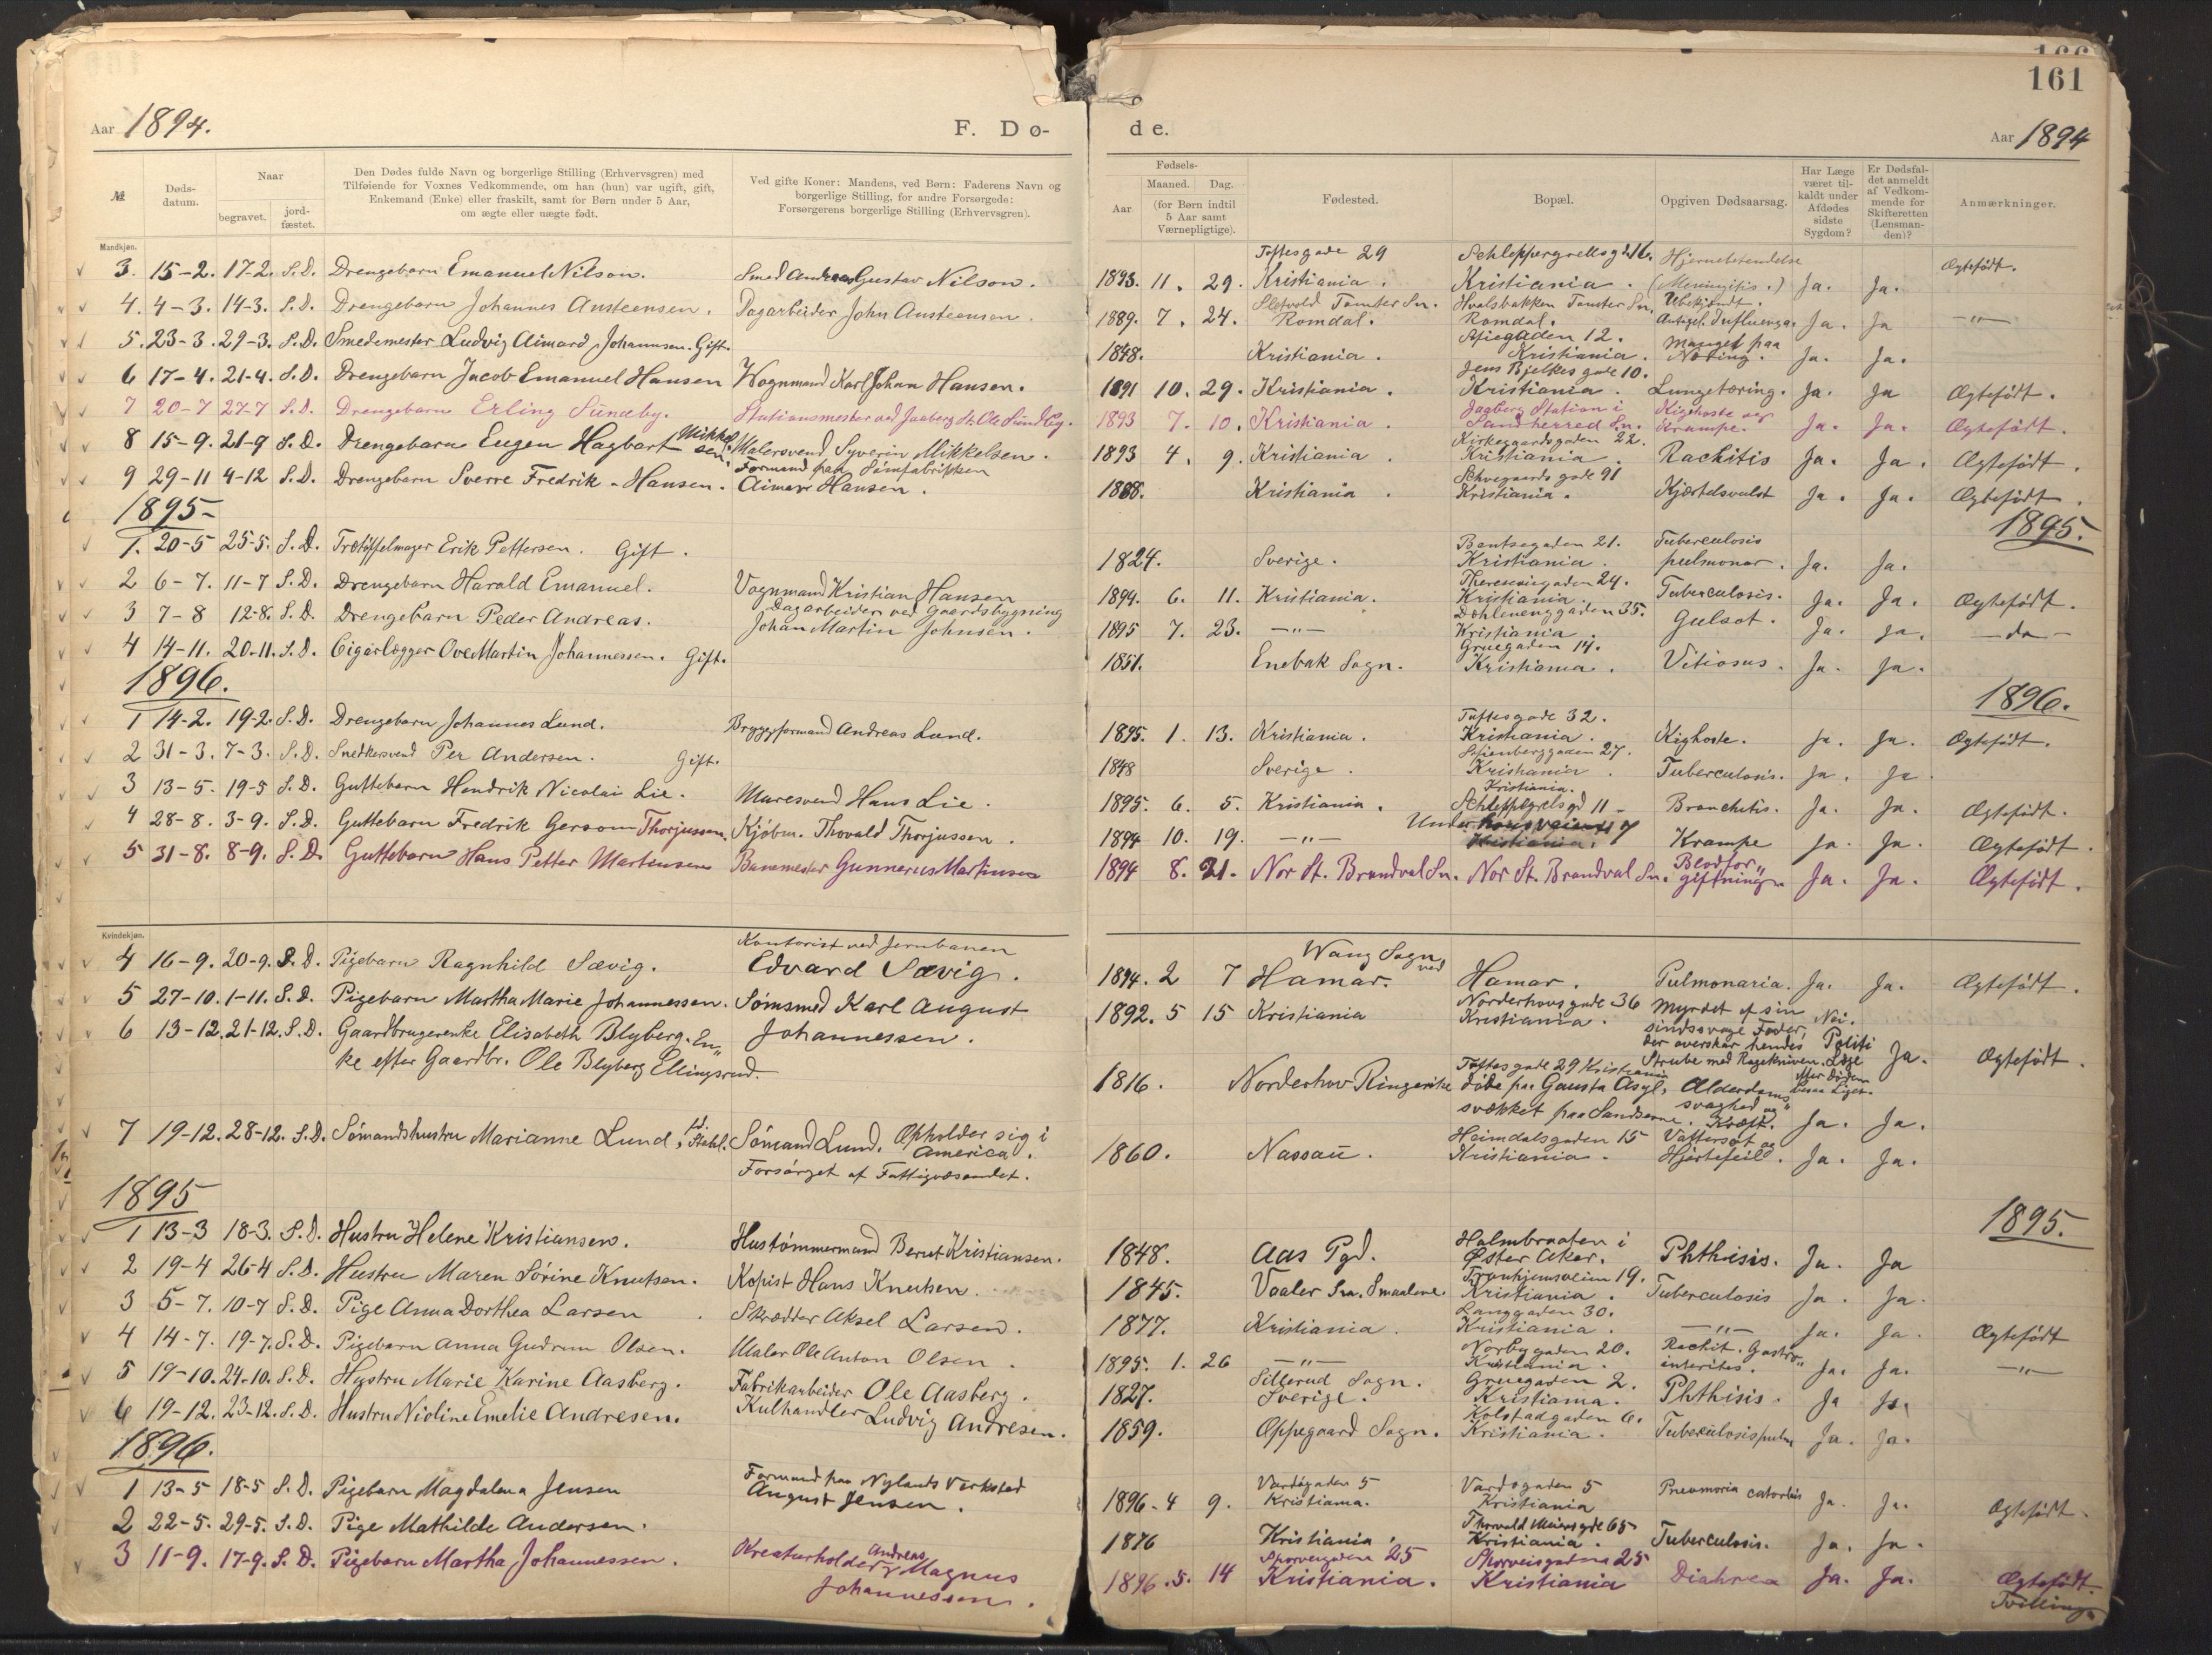 166
161
Aar 1894.
F. Dø-
de.
Aar 1894
№
Døds-
datum.
Naar
begravet.
jord-
fæstet.
Den Dødes fulde Navn og borgerlige Stilling (Erhvervsgren) med
Tilføiende for Voxnes Vedkommende, om han (hun) var ugift, gift,
Enkemand (Enke) eller fraskilt, samt for Børn under 5 Aar,
om ægte eller uægte født.
Ved gifte Koner: Mandens, ved Børn: Faderens Navn og
borgerlige Stilling, for andre Forsørgede:
Forsørgerens borgerlige Stilling (Erhvervsgren).
Fødsels-
Aar
Maaned.
Dag.
(for Børn indtil
5 Aar samt
Værnepligtige).
Fødested.
Bopæl.
Opgiven Dødsaarsag.
Har Læge
været til-
kaldt under
Afdødes
sidste
Sygdom?
Er Dødsfal-
det anmeldt
af Vedkom-
mende for
Skifteretten
(Lensman-
den)?
Anmærkninger.
Mandkjøn.
3. 15-2. 17-2. S.D. Drengebarn Emanuel Nilson. Smed Andreas Gustav Nilson. 1893. 11. 29. Toftesgade 29 Kristiania. Schleppergrellsgd. 16. Kristiania. Hjernebetendelse (Meningitis.) Ja. Ja. Ægtefødt.
4. 4-3. 14-3. S.D. Drengebarn Johannes Austeensen. Dagarbeider John Austeensen. 1889. 7. 24. Tomter Sn. Romdal. Hvalsbakken Tomter Sn. Romdal. Ubekjendt. Antagel. Influenza. Ja. Ja -"-
5. 23-3. 29-3. S.D. Smedemester Ludvig Aimard Johannsen. Gift. 1848. Kristiania. Stiegaden 12. Kristiania. Mangel paa Næring. Ja. Ja.
6 17-4. 21-4. S.D. Drengebarn Jacob Emanuel Hansen Vognmand Karl Johan Hansen. 1891 10. 29. Kristiania. Jens Bjelkes gade 10. Kristiania. Lungetæring. Ja. Ja Ægtefødt.
7 20-7 27-7 S.D. Drengebarn Erling Sundby. Stationsmester ved Jaaberg St. Ole Sundby. 1893 7. 10. Kristiania. Jaaberg Station i Sandherred Sn. Kighoste og Krampe. Ja. Ja. Ægtefødt.
8 15-9. 21-9 S.D. Drengebarn Eugen Hagbart Mikkelsen. Malersvend Syverin Mikkelsen. 1893 4. 9. Kristiania. Kirkegaardsgaden 22. Kristiania. Rachitis Ja. Ja. Ægtefødt.
9 29-11 4-12 S.D. Drengebarn Sverre Fredrik Hansen. Formand paa Limfabrikken Aimar Hansen. 1888. Kristiania. Schvegaards gade 91 Kristiania. Kjærtelsvulst Ja. Ja. Ægtefødt.
1895- 1895.
1. 20-5 25-5. S.D. Trætøffelmager Erik Pettersen. Gift. 1824. Sverige. Bentsegaden 21. Kristiania. Tuberculosis pulmonar. Ja. Ja.
2 6-7. 11-7 S.D. Drengebarn Harald Emanuel. Vognmand Kristian Hansen 1894. 6. 11. Kristiania. Theresesgaden 24. Kristiania. Tuberculosis. Ja. Ja. Ægtefødt.
3 7-8 12-8. S.D. Drengebarn Peder Andreas. Dagarbeider ved Gaardsbygning Johan Martin Johnsen. 1895 7. 23. -"- Døhlenenggaden 35. Kristiania. Gulsot. Ja. Ja. -do-
4 14-11. 20-11. S.D. Cigarlægger Ove Martin Johannessen. Gift. 1851. Enebak Sogn. Gruegaden 14. Kristiania. Vitiosus. Ja. Ja.
1896. 1896.
1 14-2. 19-2. S.D. Drengebarn Johannes Lund. Bryggeformand Andreas Lund. 1895. 1. 13. Kristiania. Toftesgade 32. Kristiania. Kighoste. Ja. Ja. Ægtefødt.
2 31-3. 7-3. S.D. Snedkersvend Per Andersen. Gift. 1848 Sverige. Stienberggaden 27. Kristiania. Tuberculosis. Ja. Ja.
3 13-5. 19-5 S.D. Guttebarn Hendrik Nicolai Lie. Muresvend Hans Lie. 1895. 6. 5. Kristiania. Kristiania. Schleppegrelsgd 11 - Bronchitis. Ja. Ja. Ægtefødt.
4 28-8. 3-9. S.D. Guttebarn Fredrik Gersom Thorjussen. Kjøbm. Thovald Thorjussen. 1894 10. 19. -"- Under 7 Kristiania. Krampe Ja. Ja. Ægtefødt.
5 31-8. 8-9. S.D. Guttebarn Hans Petter Martinsen Banemester Gunnerus Martinsen 1894 8. 21. Nor St. Brandval Sn. Nor St. Brandval Sn. Blodforgiftning. Ja. Ja. Ægtefødt.
Kvindekjøn.
4 16-9. 20-9. S.D. Pigebarn Ragnhild Sævig. Kontorist ved Jernbanen Edvard Sævig. 1894. 2 7 Wang Sogn ved Hamar. Hamar. Pulmonaria. Ja. Ja. Ægtefødt.
5 27-10. 1-11. S.D. Pigebarn Martha Marie Johannessen. Sømsmed Karl August Johannessen. 1892. 5 15 Kristiania Norderhovsgade 36 Kristiania. Myrdet af sin sindssvage Fader, der overskar hendes Strube med Ragekniven. Nei. Politi Læge Ja. Ægtefødt.
6 13-12. 21-12. S.D. Gaardbrugerenke Elisabeth Blyberg. En„ke efter Gaardbr. Ole Blyberg Ellingsrud. 1816. Norderhov Ringerike Toftesgade 29 Kristiania døde paa Gausta Asyl, svækket paa Sandserne. Alderdomssvaghed og Kræft. Ja. Ja.
7 19-12. 28-12. S.D. Sømandshustru Marianne Lund, Sømand Lund. Opholder sig i America. Forsørget af Fattigvæsendet. 1860. Nassau. Heimdalsgaden 15 Kristiania. Vattersot og Hjertefeil. Ja. Ja.
1895 1895.
1 13-3 18-3. S.D. Hustru Helene Kristiansen. Hustømmermand Bernt Kristiansen. 1848. Aas Pgd. Holmbraaten i Øster Aker. Phthisis. Ja. Ja
2 19-4 26-4 S.D. Hustru Maren Sørine Knutsen. Kopist Hans Knutsen. 1845. Vaaler Sn. Smaalene. Tronhjemsveien 19. Kristiania. Tuberculosis Ja. Ja.
3 5-7. 10-7 S.D. Pige Anna Dorthea Larsen Skrædder Aksel Larsen. 1877. Kristiania. Langgaden 30. Kristiania. -"- Ja. Ja. Ægtefødt
4 14-7. 19-7. S.D. Pigebarn Anna Gudrun Olsen. Maler Ole Anton Olsen. 1895. 1. 26 -"- Norbygaden 20. Kristiania. Rachit. Gastro„ interites. Ja. Ja. -"-
5 19-10. 24-10. S.D. Hustru Marie Karine Aasberg. Fabrikarbeider Ole Aasberg. 1827. Sillerud Sogn. Sverige. Gruegaden 2. Kristiania. Phthisis. Ja Ja.
6 19-12. 23-12. S.D. Hustru Nioline Emelie Andresen. Kulhandler Ludvig Andresen. 1859. Oppegaard Sogn. Kolstadgaden 6. Kristiania. Tuberculosis pulm Ja. Ja.
1896.
1 13-5 18-5 S.D. Pigebarn Magdalena Jensen Formand paa Nylands Verksted August Jensen. 1896-4 9. Vardøgaden 5 Kristiania. Vardøgaden 5 Kristiania Pneumoria Ja. Ja. Ægtefødt.
2 22-5. 29-5. S.D. Pige Mathilde Andersen. 1876 Kristiania. Thorvald Meiersgde 65 Kristiania. Tuberculosis. Ja. Ja.
3 11-9. 17-9. S.D. Pigebarn Martha Johannessen. Kreaturholder Andreas Magnus Johannessen. 1896. 5. 14 Sporveisgaden 25 Kristiania. Sporveisgaden 25 Kristiania Diahrea Ja. Ja. Ægtefødt. Tvilling